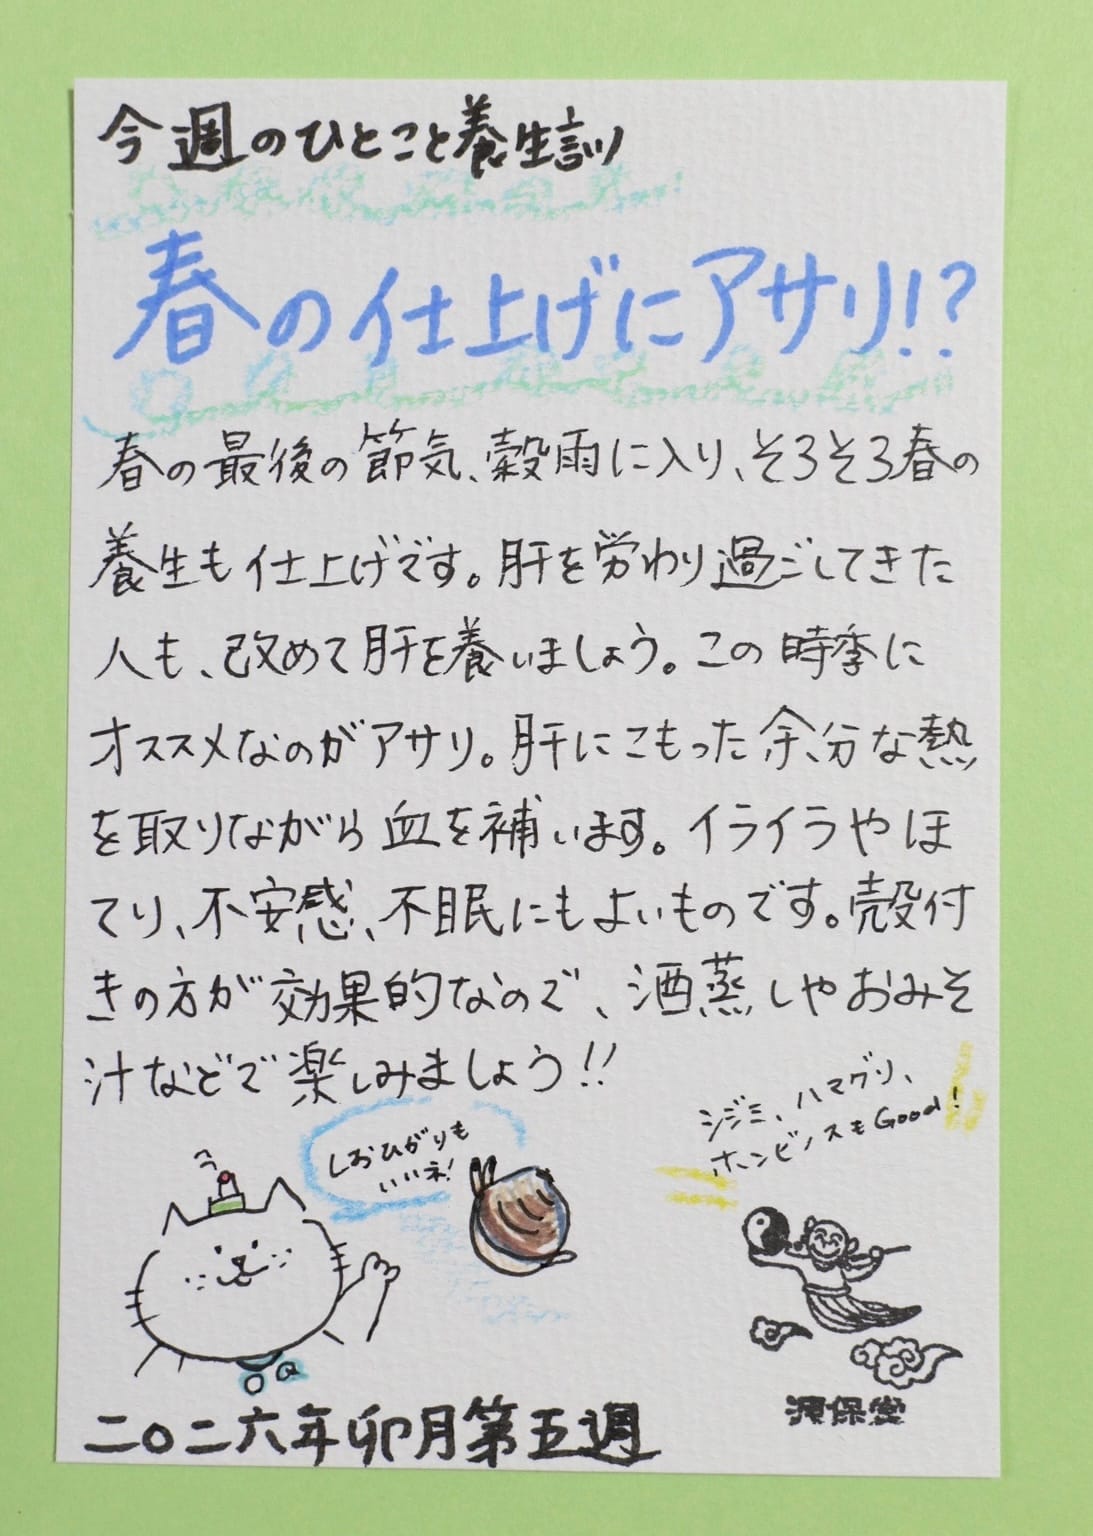 今週のひとこと養生訓
春の仕上げにアサリ!?
春の最後の節気、穀雨に入り、そろそろ春の
養生も仕上げです。肝を労わり過ごしてきた
人も、改めて肝を養いましょう。この時季に
オススメなのがアサリ。肝にこもった余分な熱
を取りながら血を補います。イライラやほ
てり、不安感、不眠にもよいものです。殻付
きの方が効果的なので、酒蒸しやおみそ
汁などで楽しみましょう!!
しおひがりも
いいネ!
シジミ、ハマグリ、
ホンビノスもGood!
源保堂
二〇二六年卯月第五週